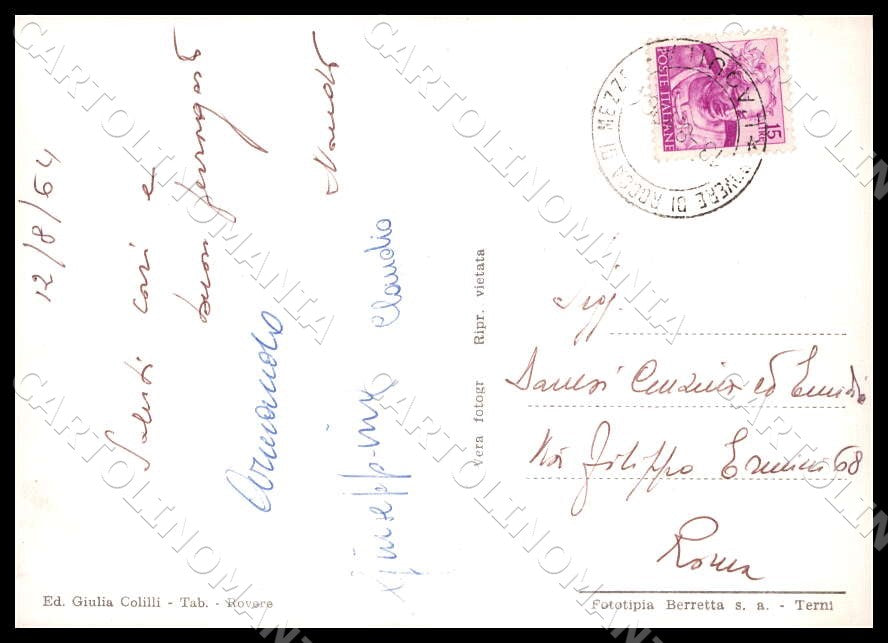 12/8/64
Saluti cari e
buon ferragosto
Nando
Armando
Giuseppina Claudio
vera fotogr Ripr. vietata
POSTE ITALIANE
LIRE 15
ROVERE DI ROCCA DI MEZZO
Sigg.
ed Emidio
Via Filippo Ermini 68
Roma
Ed. Giulia Colilli - Tab. - Rovere
Fototipia Berretta s. a. - Terni
CARTOLINOMANIA